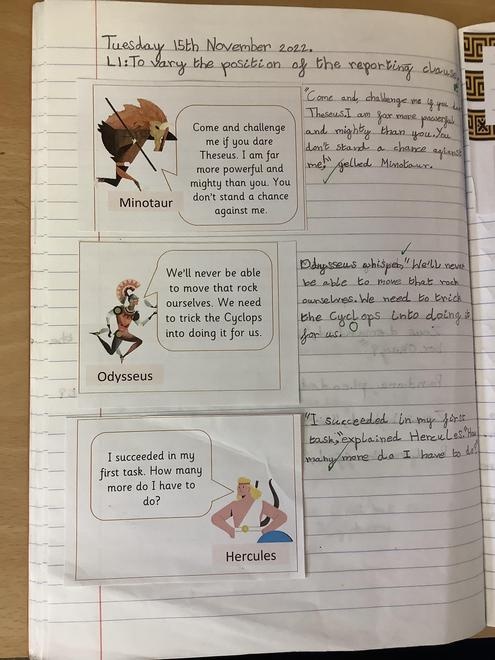 Tuesday 15th November 2022.
L1: To vary the position of the reporting clause.
Come and challenge
me if you dare
Theseus. I am far
more powerful and
mighty than you. You
don't stand a chance
against me.
Minotaur
"Come and challenge me if you
Theseus. I am far more powerful
and mighty than you. You
don't stand a chance against
me!" yelled Minotaur.
We'll never be able
to move that rock
ourselves. We need
to trick the Cyclops
into doing it for us.
Odysseus
Odysseus whisper, "We'll never
be able to move that rock
ourselves. We need to trick
the Cyclops into doing it
for us.
I succeeded in my
first task. How many
more do I have to
do?
Hercules
"I succeeded in my first
task," explained Hercules. "How
many more do I have to do?